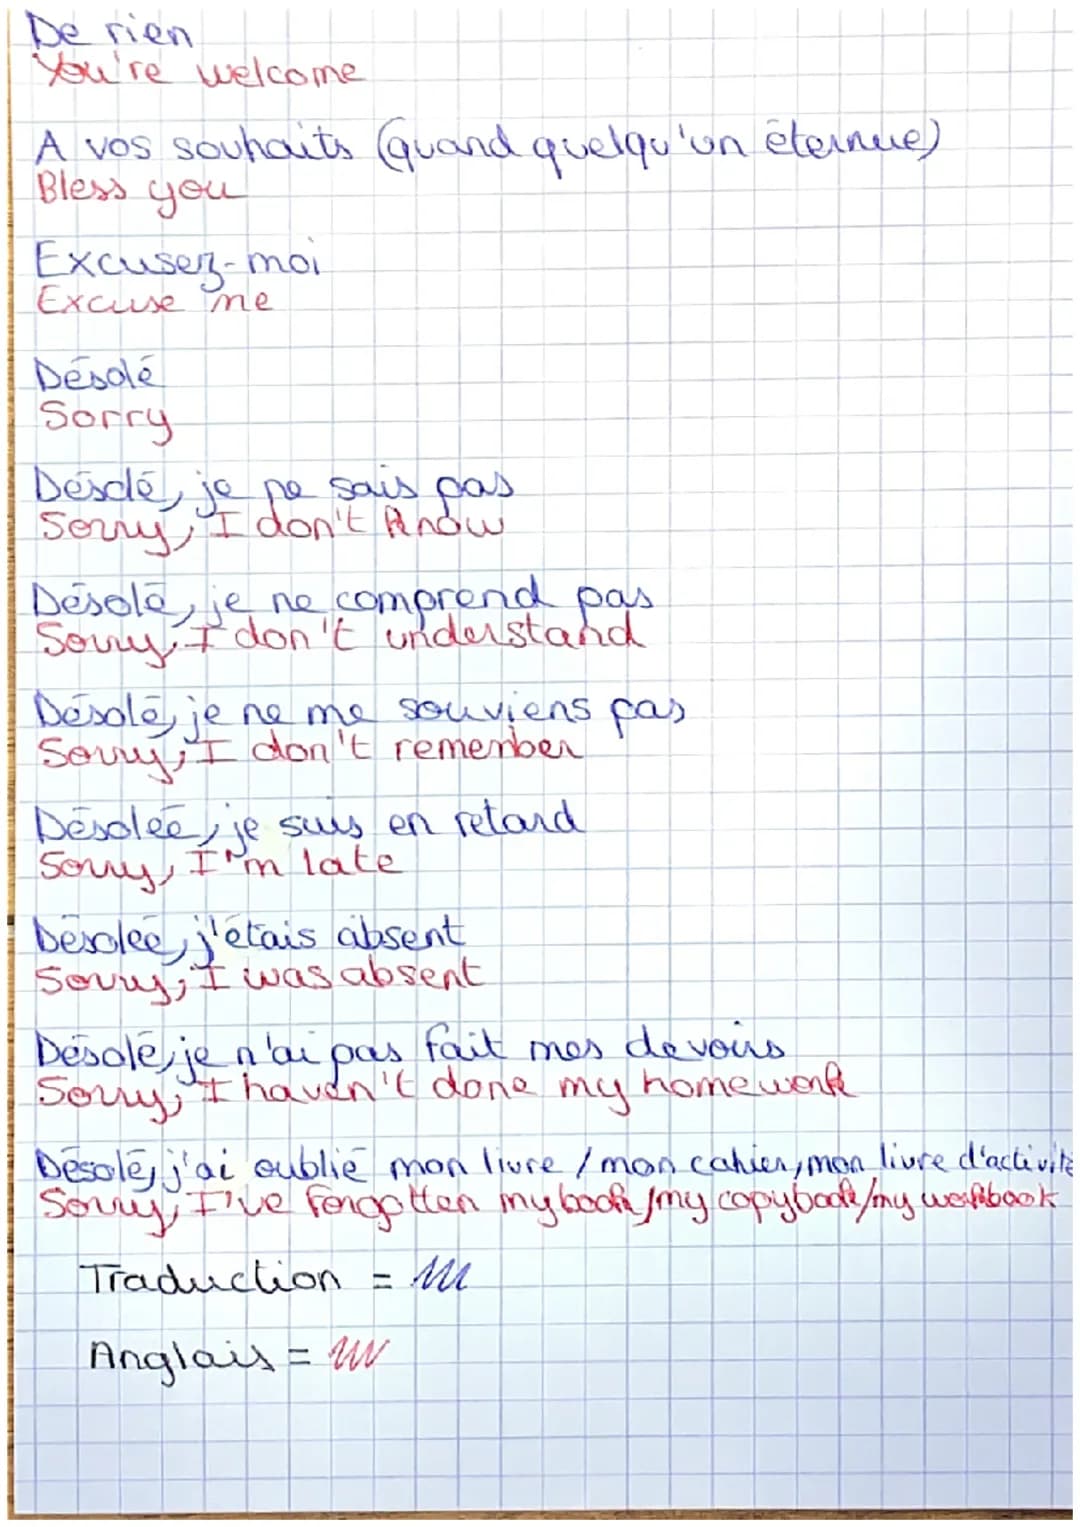 De rien
You're welcome
A vos souhaits (quand quelqu'un éternue)
Bless you
Excusez-moi
Excuse me
Désolé
Sorry
Désolé, je ne sais pas
Sorry, I don't know
Désolé, je ne comprend pas
Sorry, I don't understand
Désolé, je ne me souviens pas
Sorry, I don't remenber
Désolée, je suis en retard
Sorry, I'm late
Désolée, j'étais absent
Sorry, I was absent
Désolé, je n'ai pas fait mes devoirs
Sorry, I haven't done my homework
Désolé, j'ai oublié mon livre / mon cahier, mon livre d'activité
Sorry, I've forgotten my book/my copybook/my workbook
Traduction =
Anglais =